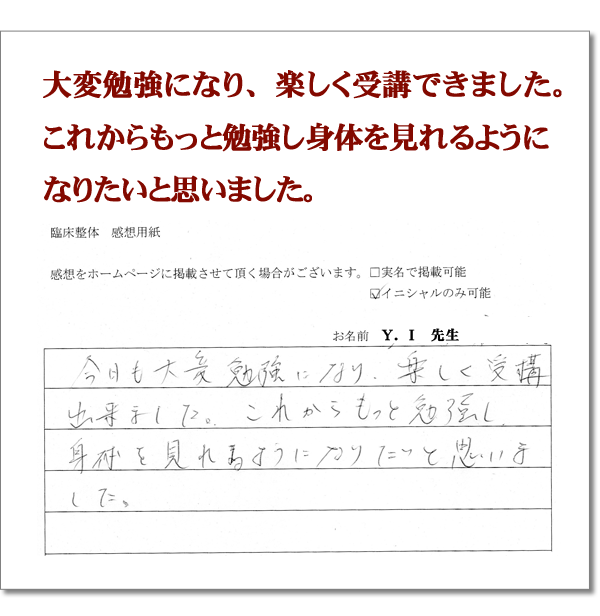 大変勉強になり、楽しく受講できました。
これからもっと勉強し身体を見れるように
なりたいと思いました。
臨床整体 感想用紙
感想をホームページに掲載させて頂く場合がございます。□実名で掲載可能
☑イニシャルのみ可能
お名前 Y．I 先生
今日も大変勉強になり、楽しく受講
出来ました。これからもっと勉強し
身体を見れるようになりたいと思いま
した。